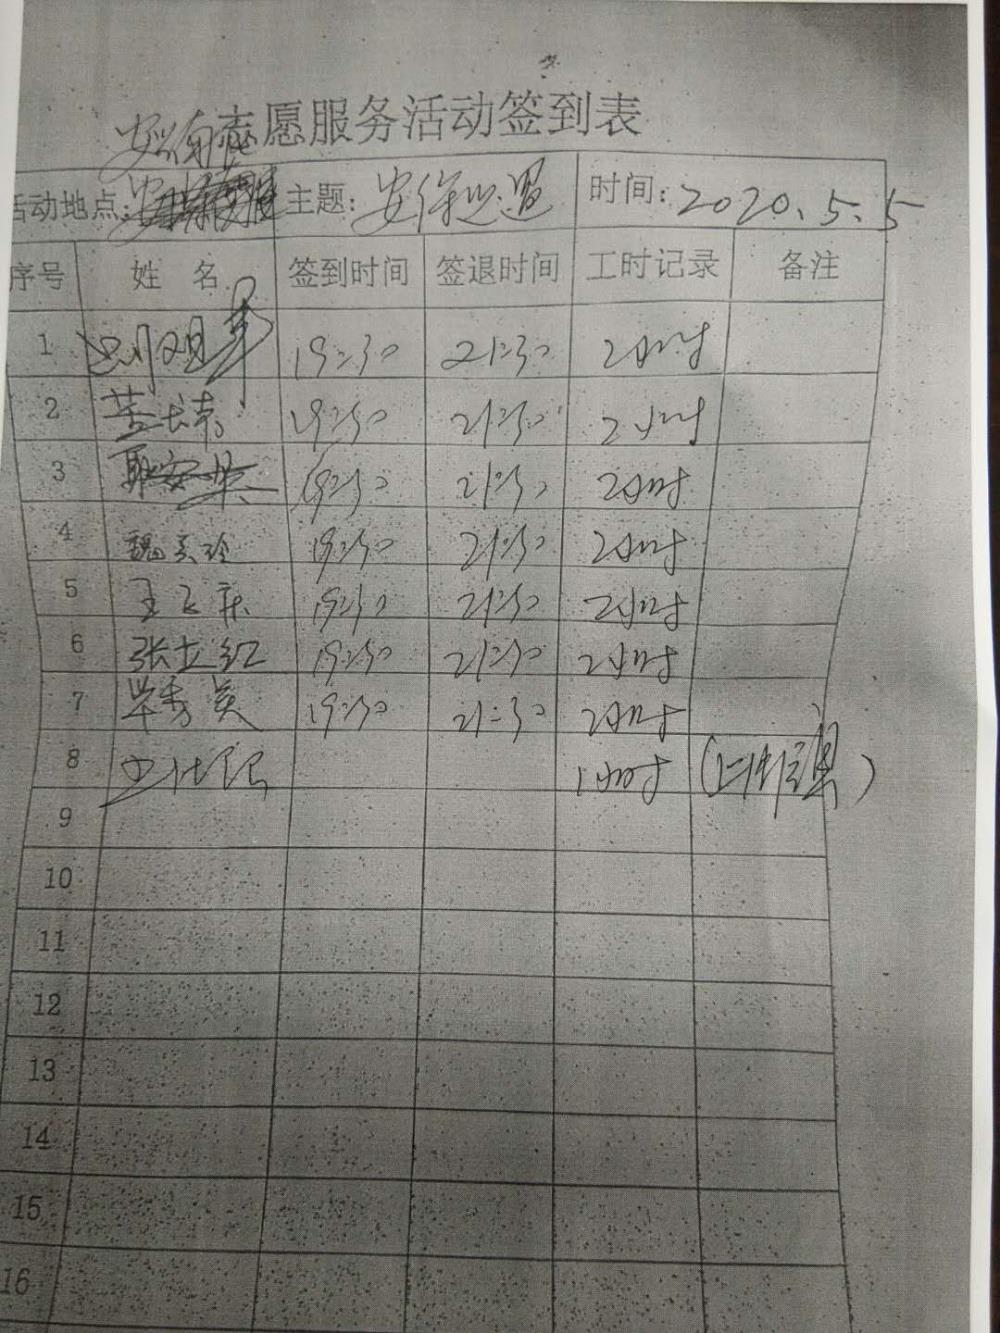 志愿服务活动签到表
活动地点: 主题: 安保巡逻 时间: 2020.5.5
序号 姓名 签到时间 签退时间 工时记录 备注
1 19:30 21:30 2小时
2 19:30 21:30 2小时
3 19:30 21:30 2小时
4 魏 19:30 21:30 2小时
5 王 19:30 21:30 2小时
6 张立红 19:30 21:30 2小时
7 毕秀英 19:30 21:30 2小时
8 1小时
9
10
11
12
13
14
15
16